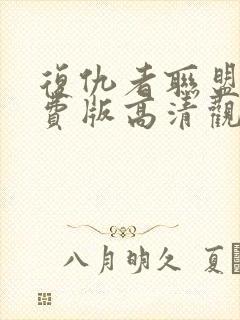 復仇者聯盟
費版高清觀
八月明久 夏